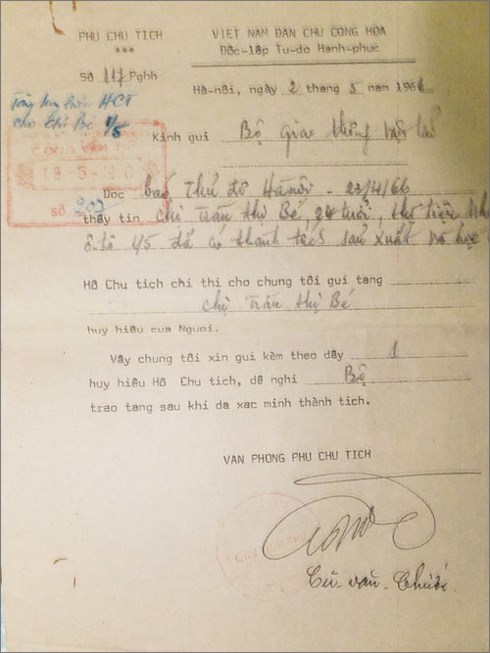 PHU CHU TICH
***
Số 117 Pghh
VIET NAM DAN CHU CONG HOA
Dôc-lâp Tu-do Hanh-phuc
Hà-nôi, ngày 2 thang 5 nam 1966
Tặng huy hiệu HCT
cho chị Bé 1/5
Kinh gui Bộ giao thông vận tải
18-5-
SỐ 202
Doc báo Thủ đô Hànội - 23/4/66
thấy tin chị Trần thị Bé, 24 tuổi, thợ tiện
ô-tô 1/5 đã có thành tích sản xuất và học
Hồ Chu tich chi thi cho chung tôi gui tang
chị Trần thị Bé
huy hiêu cua Nguoi.
Vây chung tôi xin gui kèm theo dây 1
huy hiêu Hô Chu tich, dê nghi Bộ
trao tang sau khi da xac minh thành tich.
VAN PHONG PHU CHU TICH